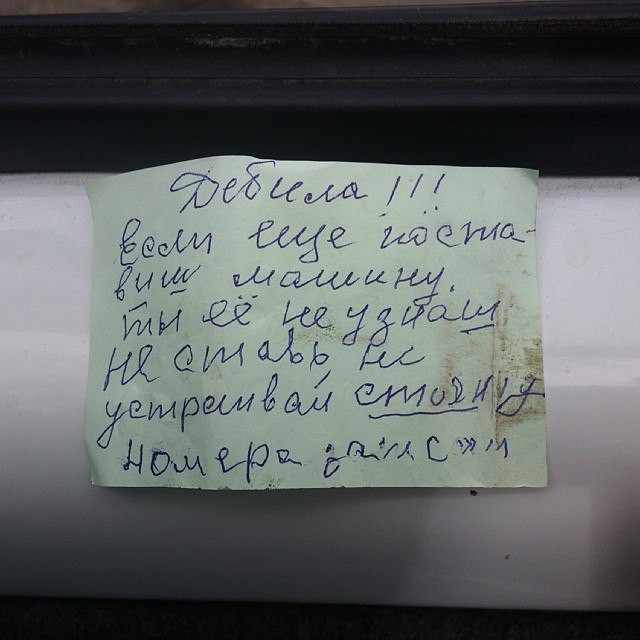 Дебила!!!
если еще поста-
виш машину.
ты её не узнаш
не ставь не
устраивай стоянку
номера